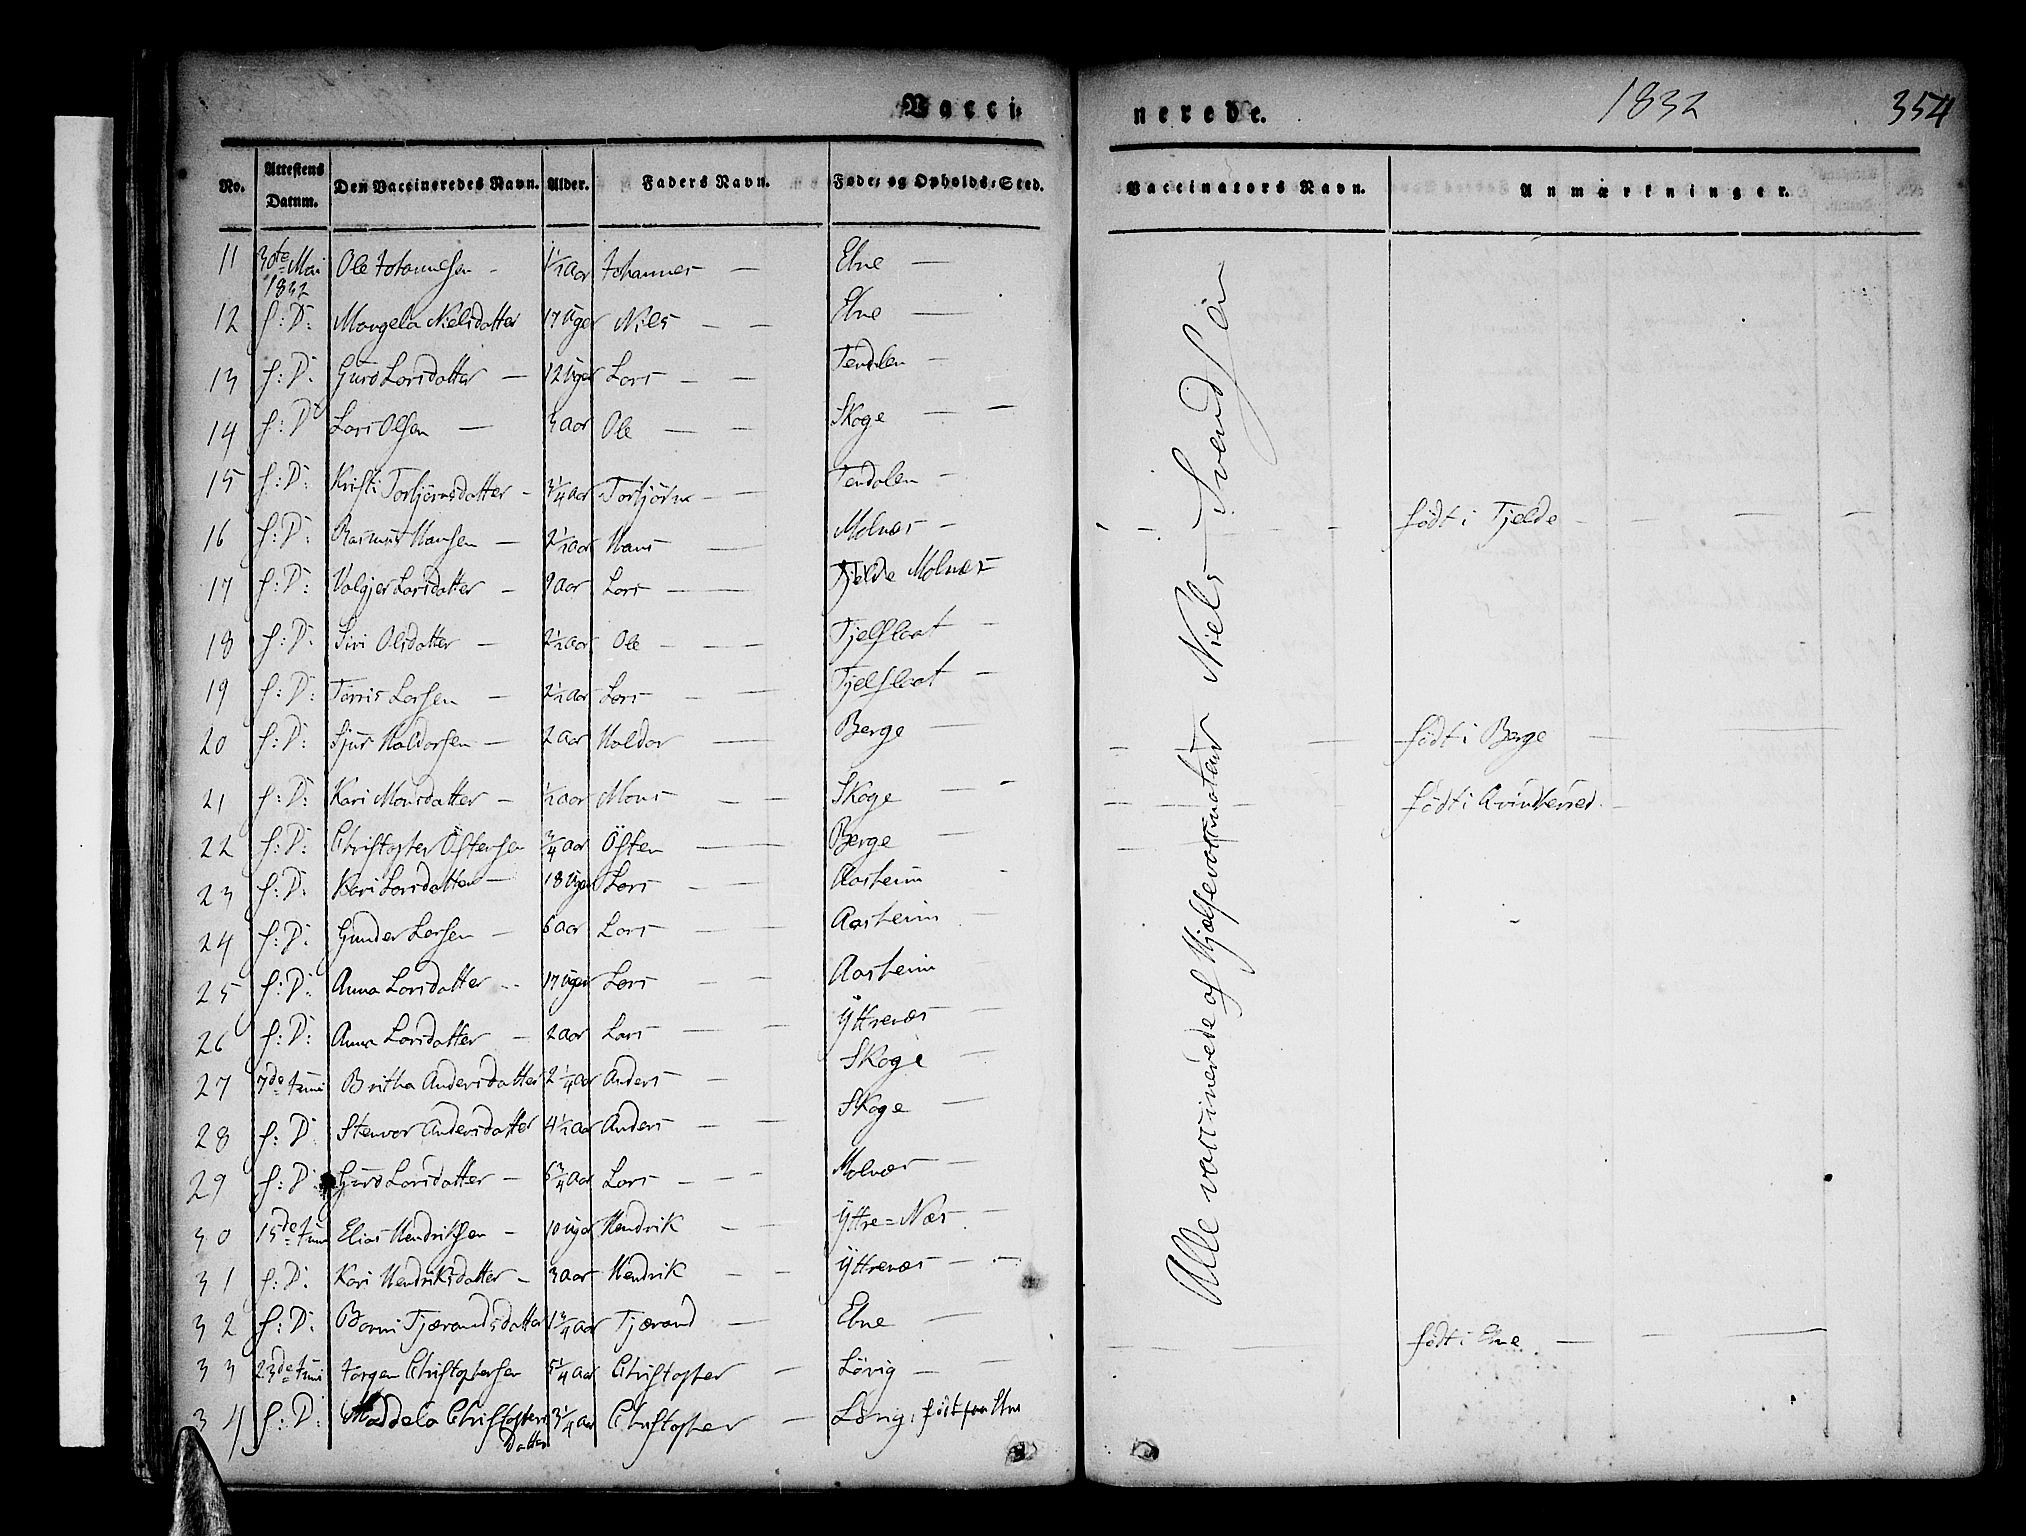 Vacci-
nerede.
1832
354
No. Attestens Datum. Den Vaccineredes Navn. Alder. Faders Navn. Føde- og Opholds-Sted. Vaccinators Navn. Anmærkninger.
11 30te Mai 1832 Ole Johannesen - 1½ aar Johannes — Ebne —
12 s: D: Margela Nielsdatter 17 Uger Niels — — Ebne —
13 s: D: Guro Larsdatter — 12 Uger Lars — — Tendalen —
14 s: D: Lars Olsen — 3 aar Ole — — Skoge — —
15 s: D: Kristi Torbjörnsdatter - ¾ aar Torbjörn — Tendalen —
16 s: D: Rasmus Hansen — 2½ aar Hans — Molnæs — födt i Tjelde —
17 s: D: Valgjer Larsdatter — 9 aar Lars — — Tjelde Molnæs
18 s: D: Siri Olsdatter — 2½ aar Ole — — Tjelflaat —
19 s: D: Tørris Larsen — 2½ aar Lars — — Tjelflaat —
20 s: D: Sjur Haldorsen — 2 aar Haldor — Berge — födt i Berge —
21 s: D: Kari Monsdatter — ½ aar Mons — — Skoge — — födt i Qvindherred. —
22 s: D: Christopher Östensen ¾ aar Östen — — Berge —
23 s: D: Kari Larsdatter — 18 Uger Lars — — Aasheim -
24 s: D: Gunder Larsen — 6 aar Lars — — Aasheim —
25 s: D: Anna Larsdatter -- 17 Uger Lars — — Aasheim —
26 s: D: Anna Larsdatter — 2 aar Lars — — Yttrenæs —
27 7de Juni Britha Andersdatter 2¼ aar Anders — Skoge —
28 s: D: Stenvor Andersdatter 4½ aar Anders — — Skoge —
29 s: D: Guro Larsdatter — 6¾ aar Lars — — Molnæs —
30 15de Juni Elias Hendriksen — 10 Uger Hendrik — — Yttre=Næs —
31 s: D: Kari Hendriksdatter — 3 aar Hendrik — — Yttrenæs — —
32 s: D: Tjærandsdatter 1¾ aar Tjærand — Ebne — födt i Ebne —
33 23de Juni Jörgen Christophersen 5¼ aar Christopher — Lövig — —
34 s: D: Maddela Christophers Datter 3¼ aar Christopher — Lövig,
Alle vaccinerede af Hjælpevaccinateur Niels Svendsen